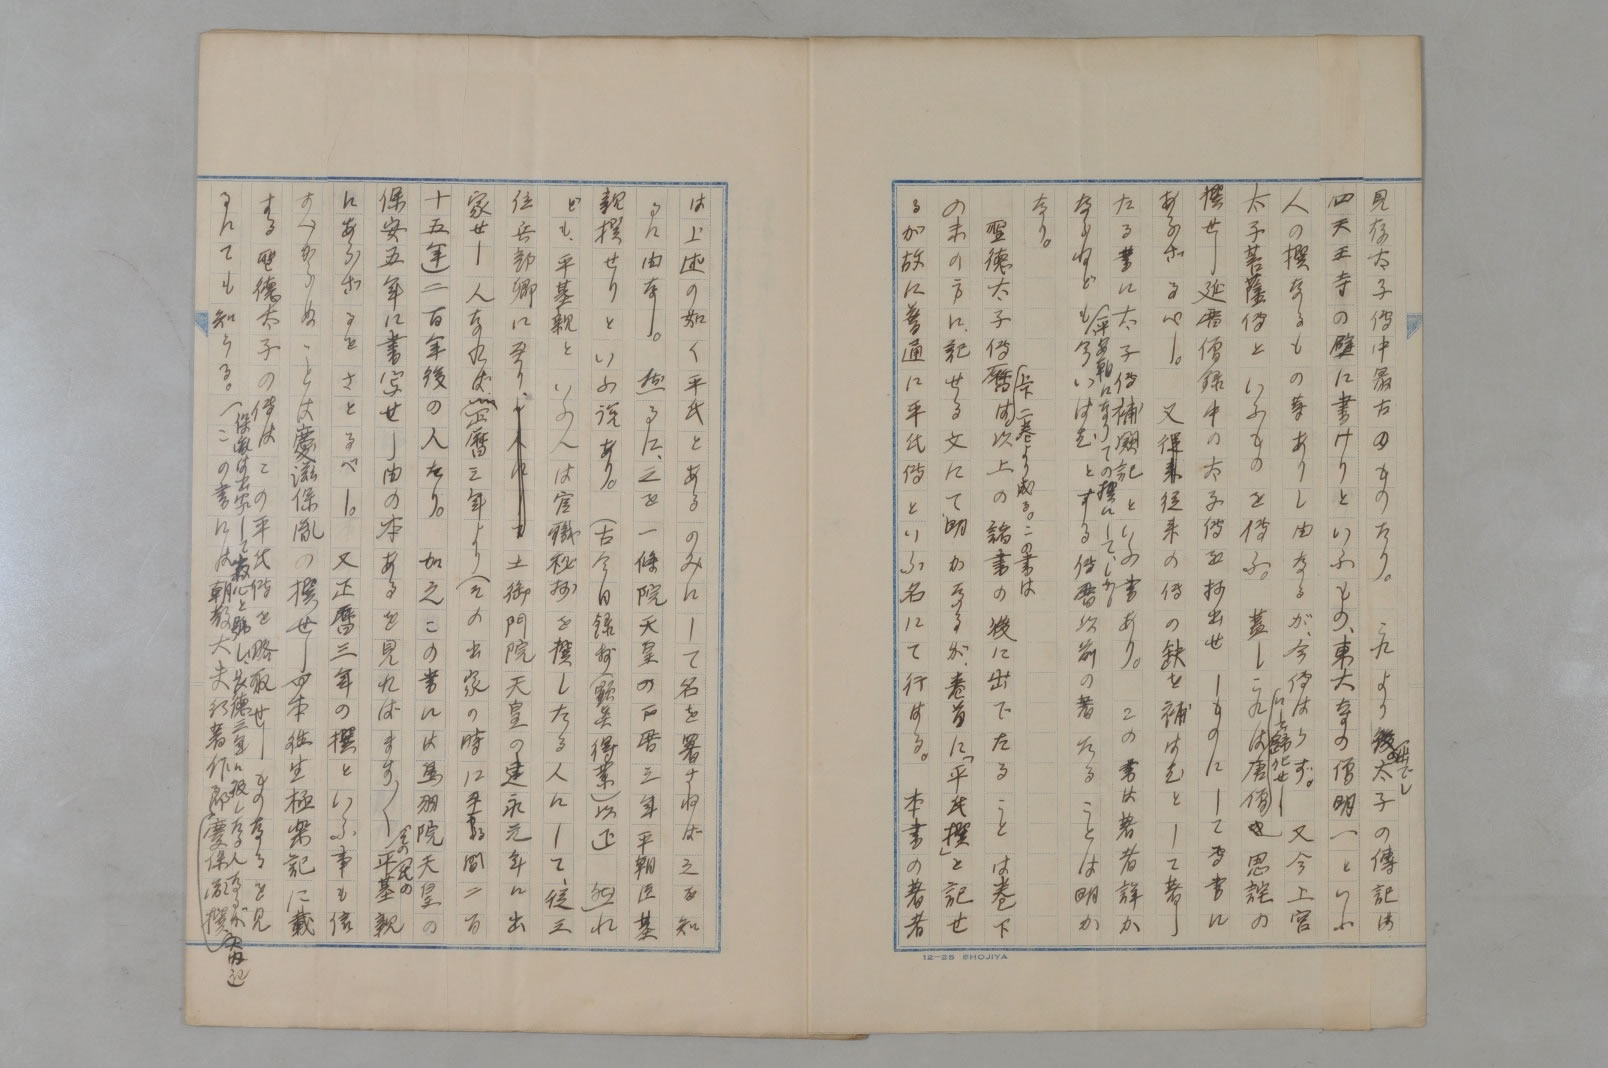 見存太子伝中最古のものたり。これより後出でし太子の傳記は
四天王寺の壁に書けりといふもの、東大寺の僧明一といふ
人の撰なるもの等ありし由なるが、今傳はらず。又今上宮
太子菩薩伝といふものを伝ふ。蓋しこれは唐僧にして歸化せし思託の
撰せし延暦僧録中の太子伝を抄出せしものにして本書に
あらざるべし。又従来の伝の缺を補はむとして著し
たる書に太子伝補闕記といふ書あり。この書は著者詳か
ならねども(平安朝になりての撰にして、しかも)今いはむとする傳暦以前の著たることは明か
なり。
聖徳太子傳暦は(上下二巻より成る。この書は以上の諸書の後に出でたることは巻下
の末の方に、記せる文にて明かなるが、巻首に「平氏撰」と記せ
るが故に普通に平氏傳といふ名にて行はる。本書の著者
は上述の如く平氏とあるのみにして名を署せねば之を知
るに由なし。然るに、之を一條院天皇の正暦三年平朝臣基
親撰せりといふ説あり。(古今目録抄(顕真得業)以下然れ
ども、平基親といふ人は官職秘抄を撰したる人にして、従三
位兵部卿に至り、土御門院天皇の建永元年に出
家せし人なれば(正暦三年より(その出家の時に至る間二百
十五年)二百年後の人たり。加之この書には鳥羽院天皇の
保安五年に書写せし由の本あるを見ればますます(その氏の)平基親
にあらざるをさとるべし。又正暦三年の撰といふ事も信
ずべからぬことは慶滋保胤の撰せし日本往生極楽記に載
する聖徳太子の傳はこの平氏傳を略取せしものなるを見
るにても知らる。(保胤は出家して寂心と号し、長徳三年に寂したる人なるが
(この書には朝散大夫行著作郎慶保胤撰